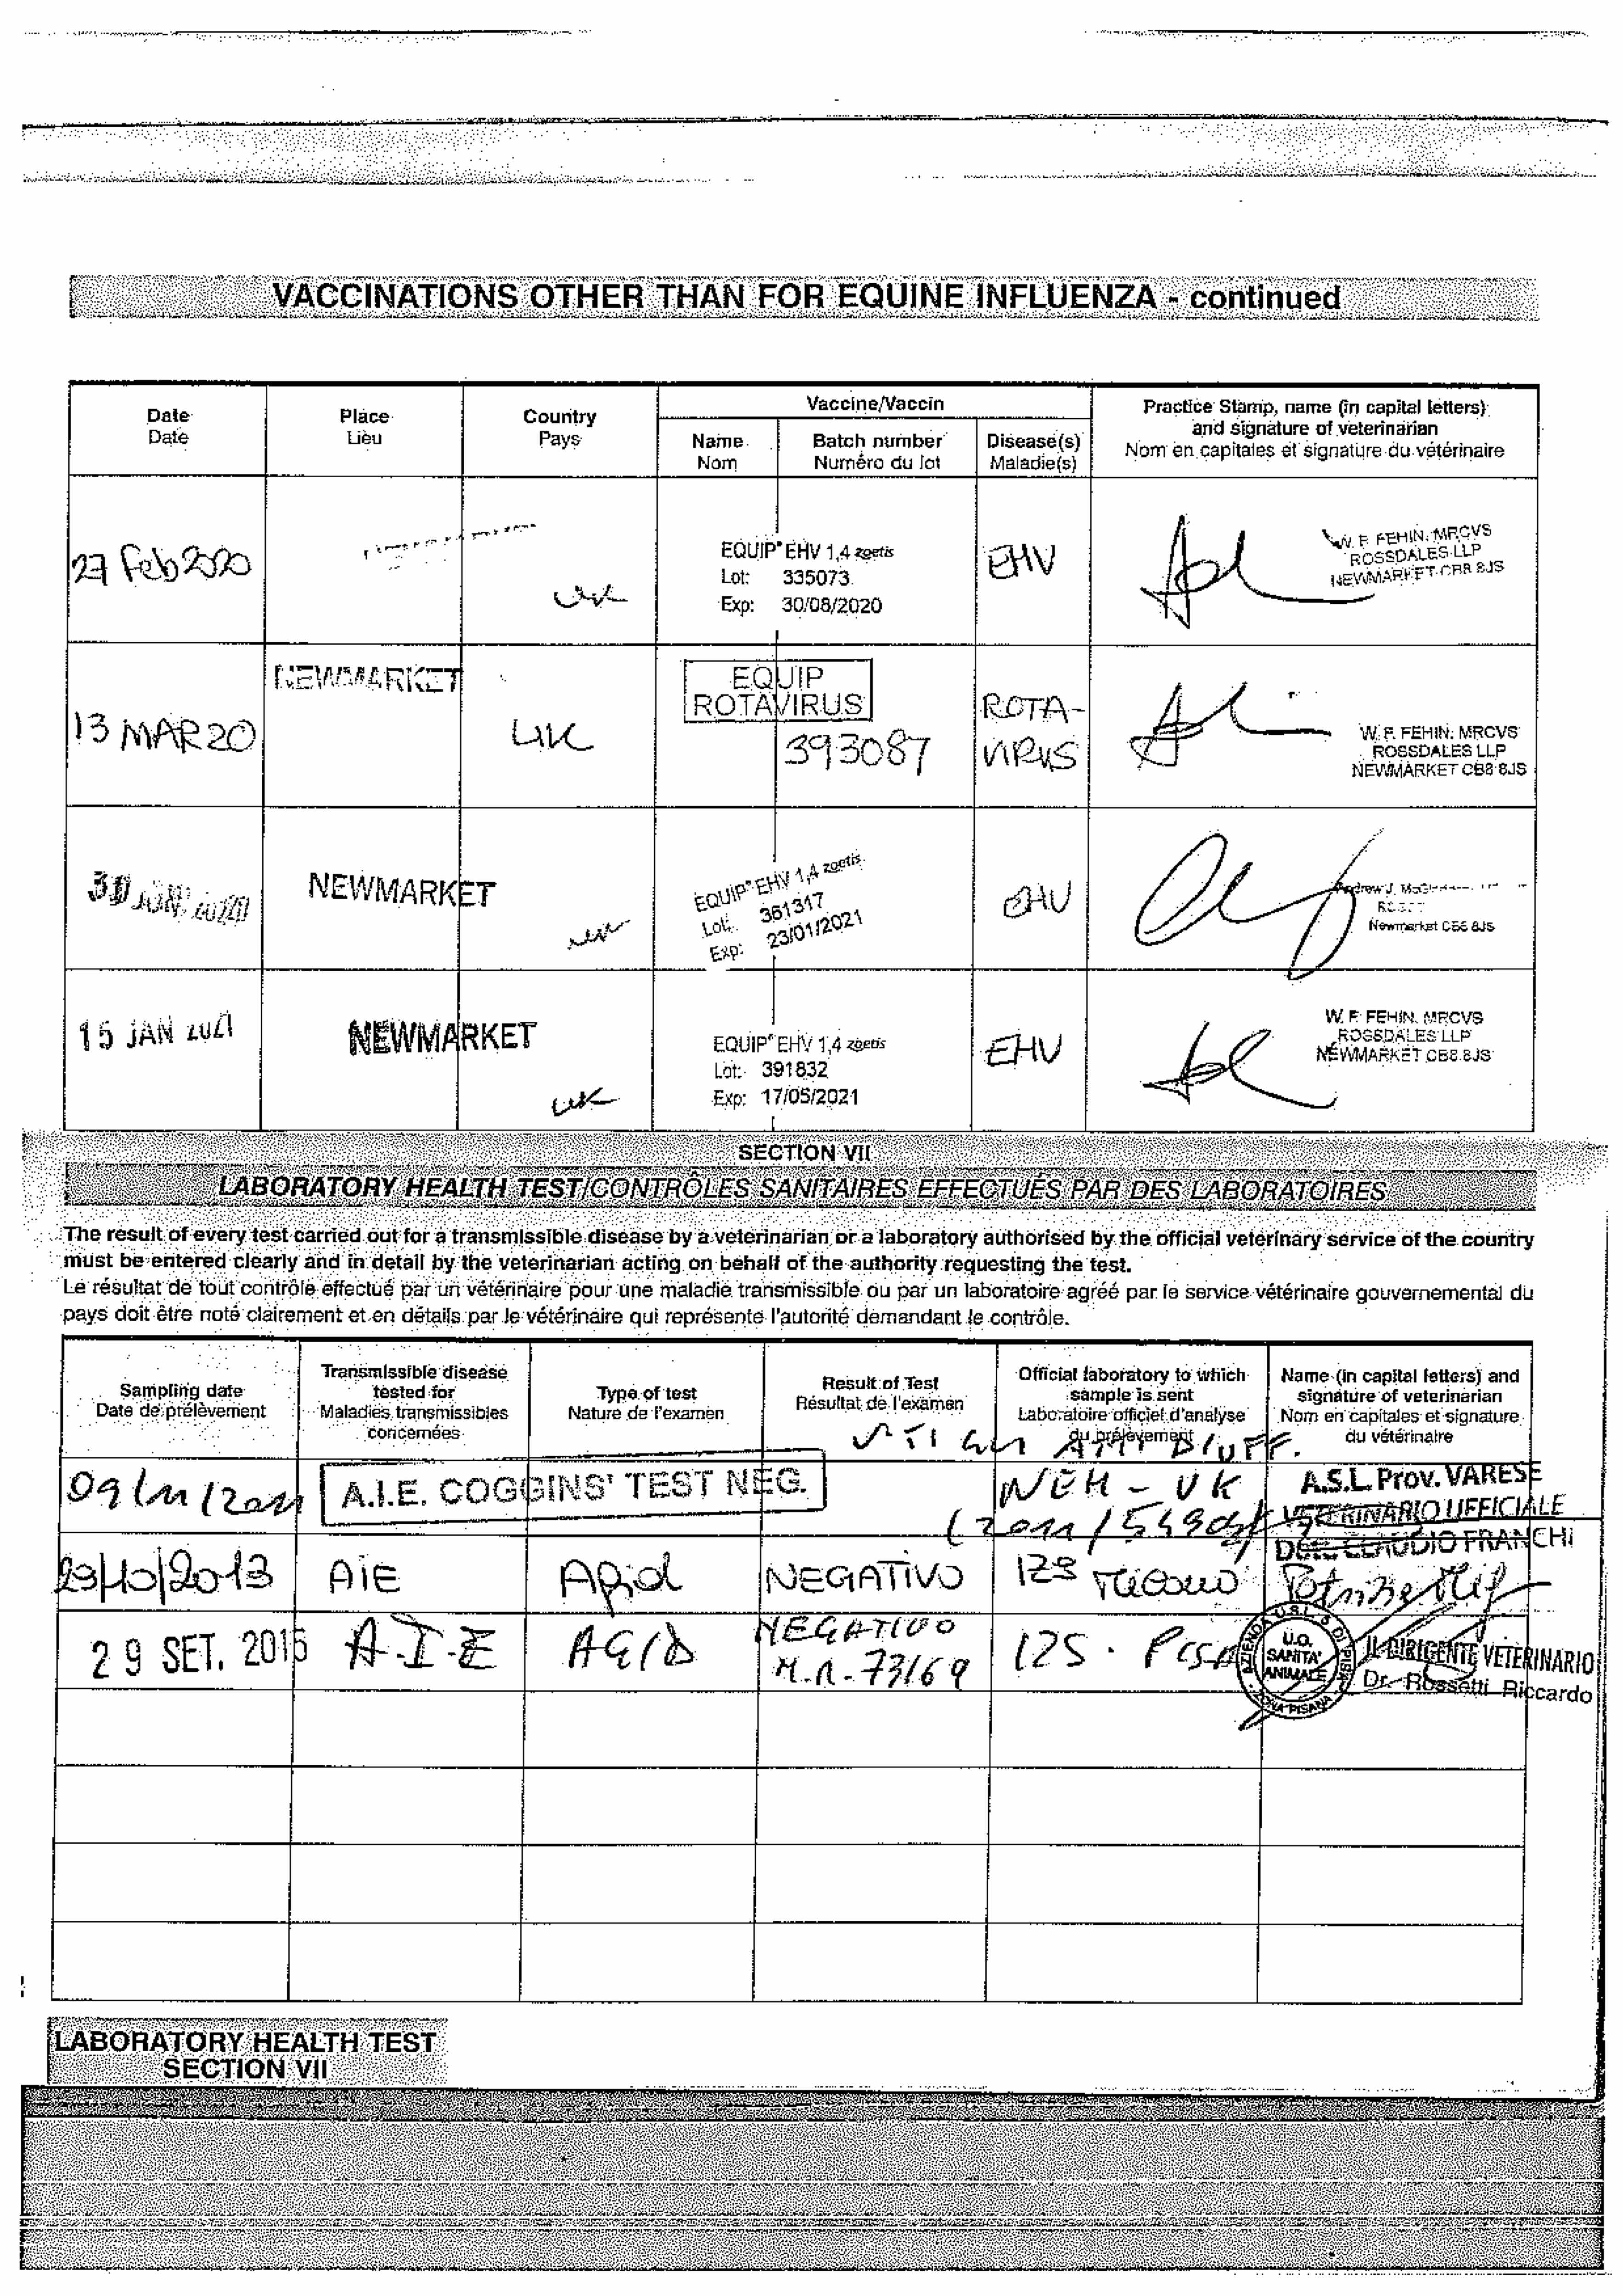 VACCINATIONS OTHER THAN FOR EQUINE INFLUENZA - continued
Date
Date
Place
Lieu
Country
Pays
Vaccine/Vaccin
Name
Nom
Batch number
Numéro du lot
Disease(s)
Maladie(s)
Practice Stamp, name (in capital letters)
and signature of veterinarian
Nom en capitales et signature du vétérinaire
27 Feb 2020
UK
EQUIP® EHV 1,4 zoetis
Lot: 335073
Exp: 30/08/2020
EHV
W. F. FEHIN. MRCVS
ROSSDALES LLP
NEWMARKET CB8 8JS
13 MAR 20
NEWMARKET
UK
EQUIP
ROTAVIRUS
393087
ROTA-
VIRUS
W. F. FEHIN. MRCVS
ROSSDALES LLP
NEWMARKET CB8 8JS
NEWMARKET
UK
EQUIP® EHV 1,4 zoetis
Lot: 361317
Exp: 23/01/2021
EHV
Newmarket CB8 8JS
15 JAN 2021
NEWMARKET
UK
EQUIP® EHV 1,4 zoetis
Lot: 391832
Exp: 17/05/2021
EHV
W. F. FEHIN. MRCVS
ROSSDALES LLP
NEWMARKET CB8 8JS
SECTION VII
LABORATORY HEALTH TEST/CONTRÔLES SANITAIRES EFFECTUÉS PAR DES LABORATOIRES
The result of every test carried out for a transmissible disease by a veterinarian or a laboratory authorised by the official veterinary service of the country
must be entered clearly and in detail by the veterinarian acting on behalf of the authority requesting the test.
Le résultat de tout contrôle effectué par un vétérinaire pour une maladie transmissible ou par un laboratoire agréé par le service vétérinaire gouvernemental du
pays doit être noté clairement et en détails par le vétérinaire qui représente l'autorité demandant le contrôle.
Sampling date
Date de prélèvement
Transmissible disease
tested for
Maladies transmissibles
concernées
Type of test
Nature de l'examen
Result of Test
Résultat de l'examen
Official laboratory to which
sample is sent
Laboratoire officiel d'analyse
du prélèvement
Name (in capital letters) and
signature of veterinarian
Nom en capitales et signature
du vétérinaire
09/11/2011
A.I.E. COGGINS' TEST NEG.
UK
A.S.L. Prov. VARESE
VETERINARIO UFFICIALE
CLAUDIO FRANCHI
23/10/2013
AIE
NEGATIVO
IZS
29 SET. 2015
A.I.E
AGID
NEGATIVO
73169
IZS. Pisa
AZIENDA U.S.L. 5 DI PISA
U.O.
SANITA'
ANIMALE
ZONA PISANA
IL DIRIGENTE VETERINARIO
Dr. Rossetti Riccardo
LABORATORY HEALTH TEST
SECTION VII